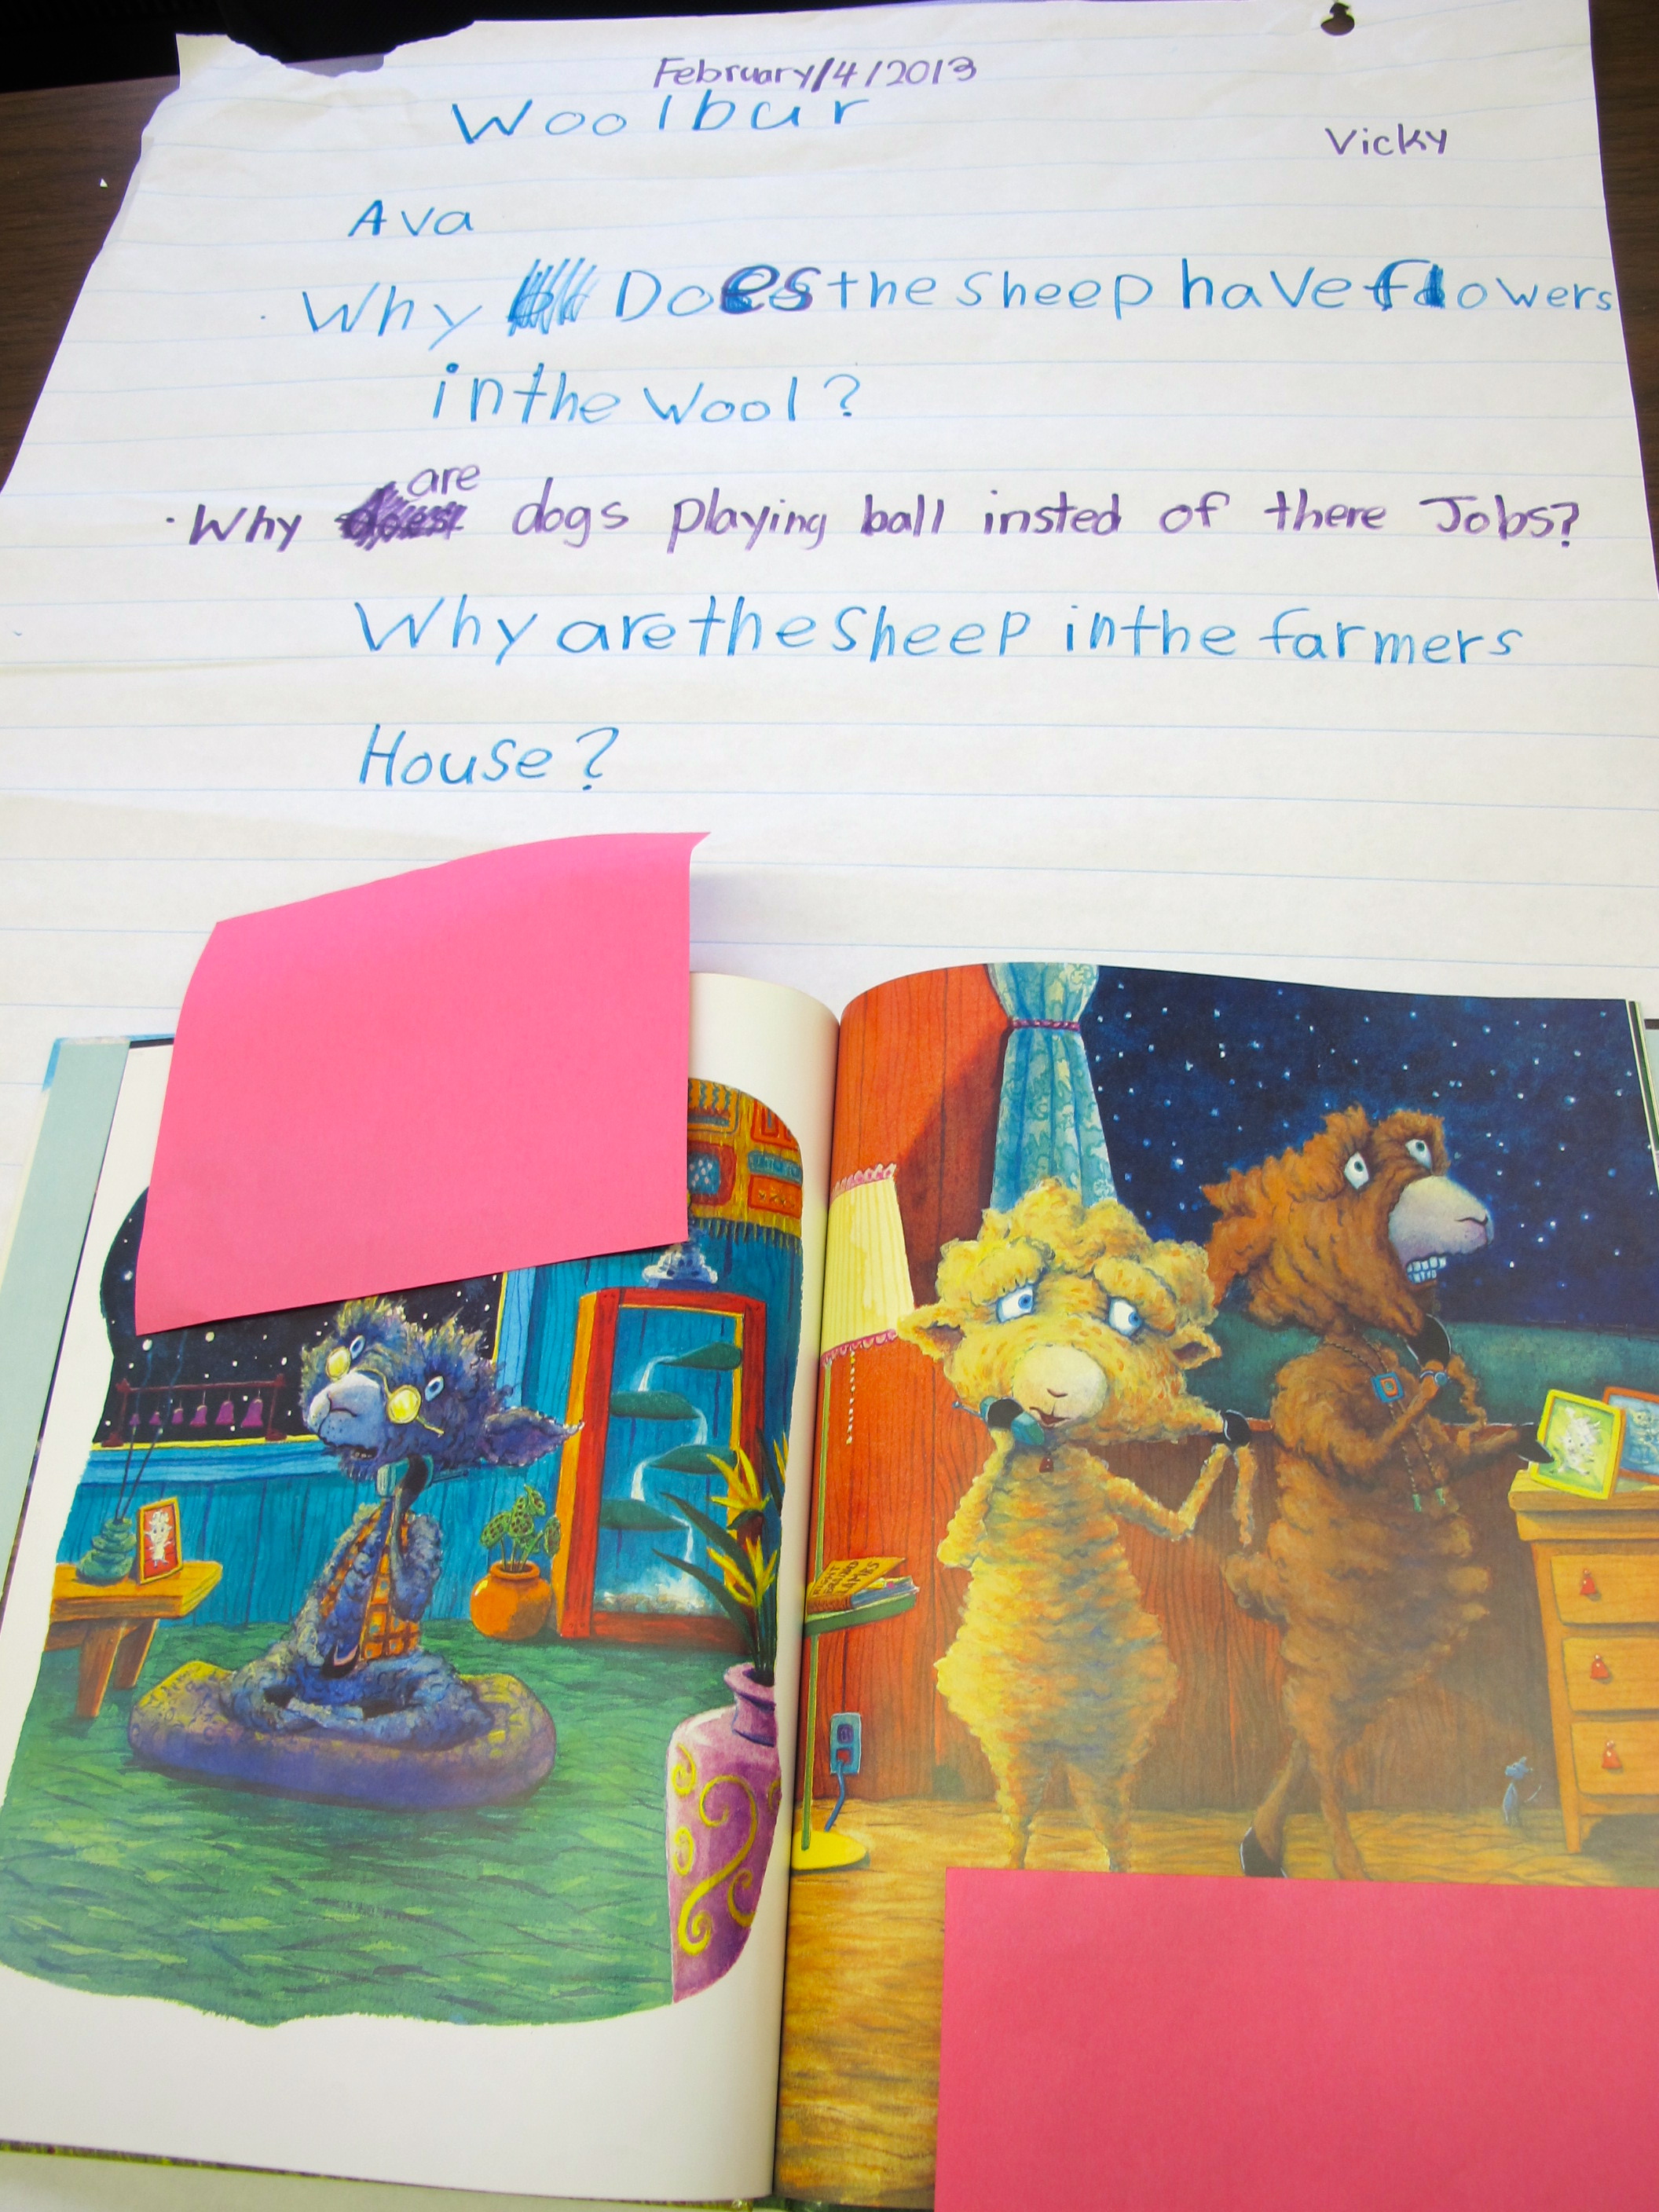 February/4/2013
Woolbur
Vicky
Ava
Why Does the sheep have flowers
in the wool?
are
·Why dogs playing ball insted of there Jobs?
Why are the sheep in the farmers
House?